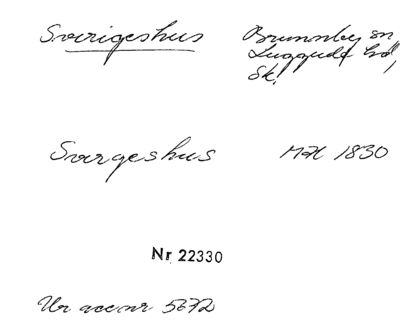 Sverigeshus
Brunnby sn,
Luggude hd,
Sk.
Svergeshus MH 1830
Nr 22330
Ur acc nr 5672